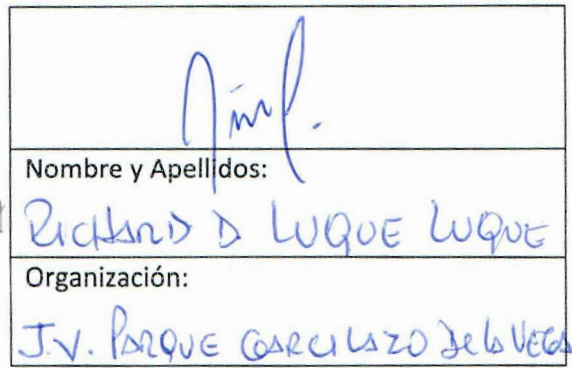 Nombre y Apellidos:
RICHARD D LUQUE LUQUE
Organización:
J.V. PARQUE GARCILAZO De la VEGA